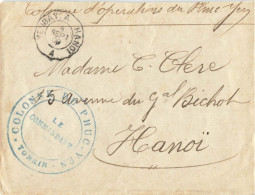 Colonne d'opérations du Phuc Yen
HANOI
Madame C. Clere
5 avenue du Gal Bichot
Hanoï
COLONNE DU PHUC-YEN
LE
COMMANDANT
TONKIN